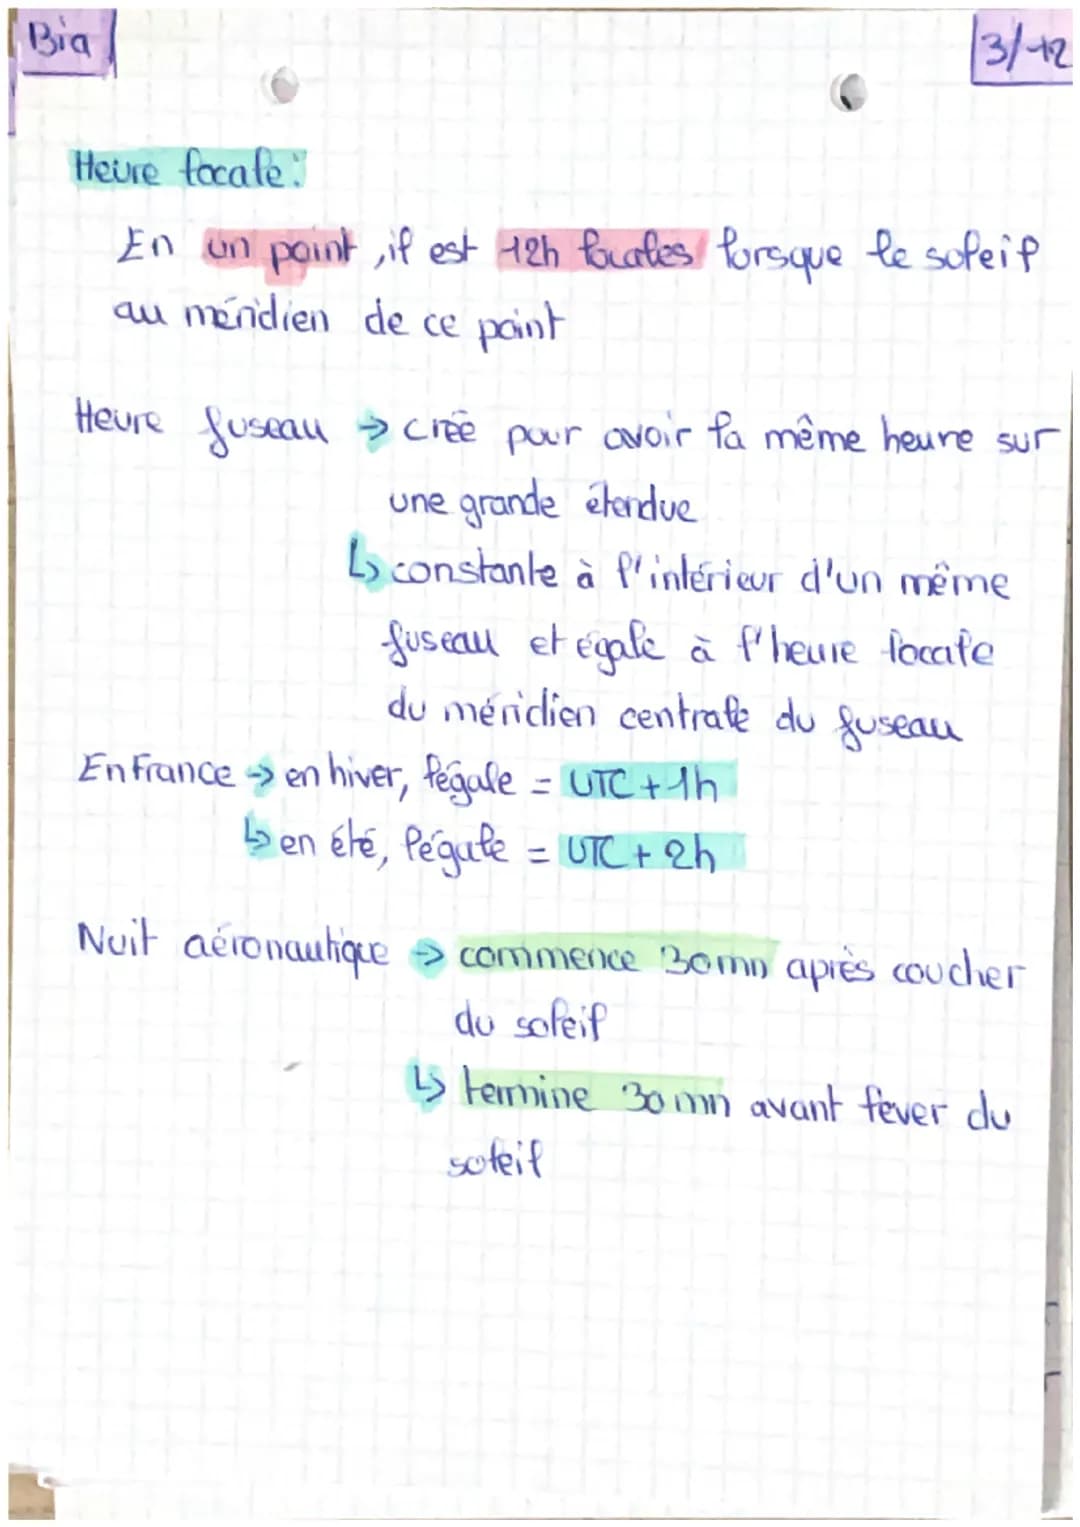 Bia
3/12
Heure locale :
En un point, il est 12h locales lorsque le soleil
au méridien de ce point
Heure fuseau → créé pour avoir la même heure sur
une grande étendue
↳ constante à l'intérieur d'un même
fuseau et égale à l'heure locale
du méridien centrale du fuseau
En France → en hiver, légale = UTC + 1h
↳ en été, légale = UTC + 2h
Nuit aéronautique → commence 30mn après coucher
du soleil
↳ termine 30mn avant lever du
soleil